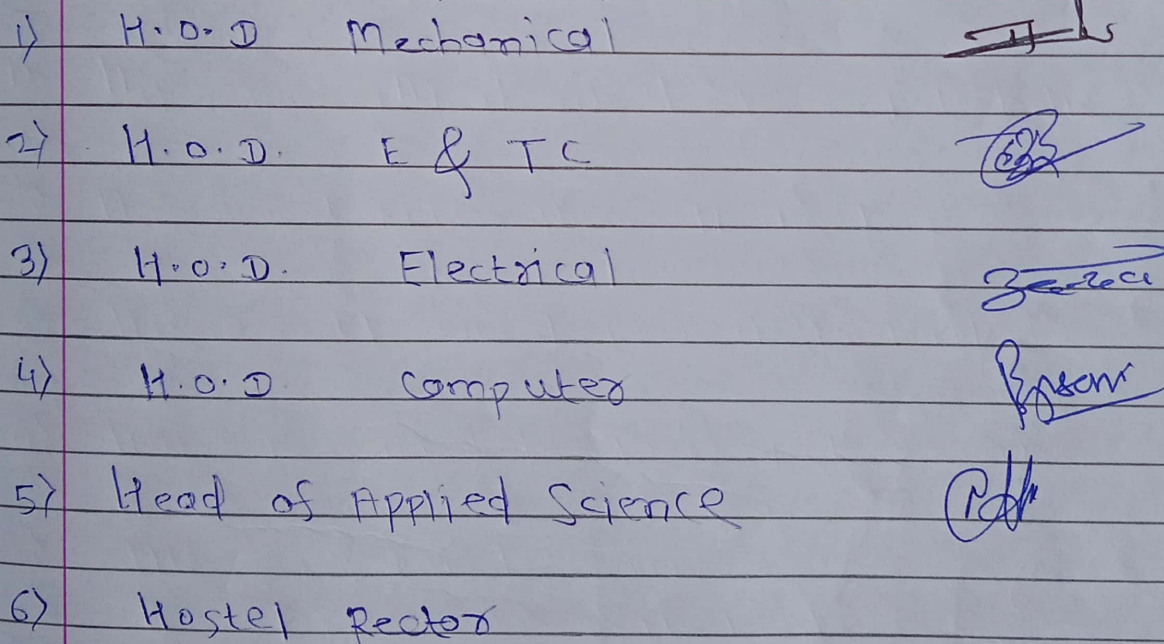 1) H.O.D Mechanical
2) H.O.D. E & TC
3) H.O.D. Electrical
4) H.O.D computer
5) Head of Applied Science
6) Hostel Rector